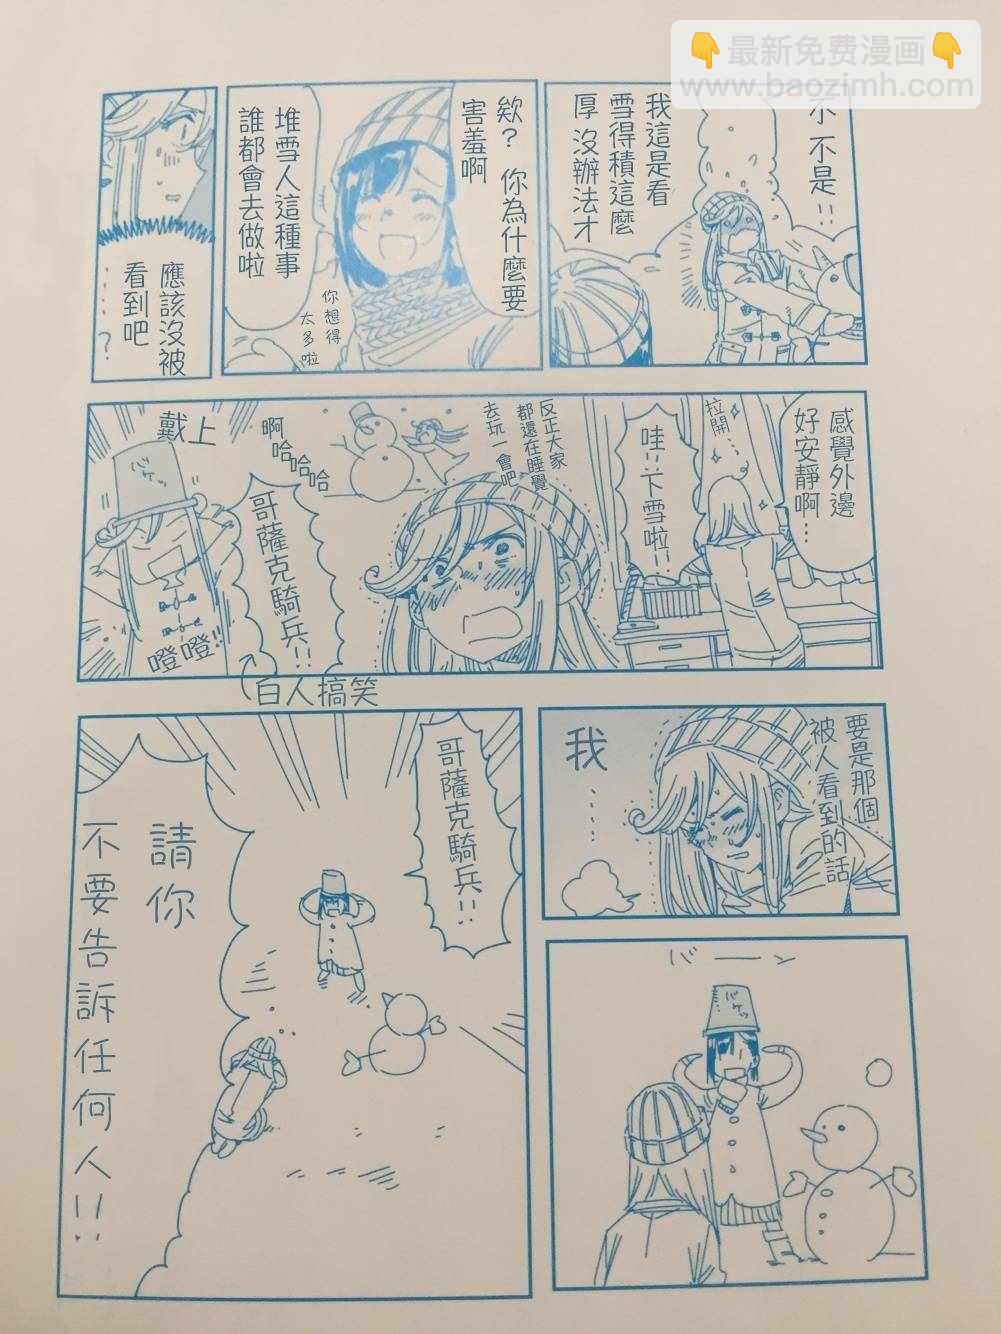 👇最新免费漫画👇
www.baozimh.com
不 不是!!
我這是看
雪得積這麼
厚 沒辦法才
欸? 你為什麼要
害羞啊
堆雪人這種事
誰都會去做啦
你想得
太多啦
應該沒被
看到吧
……?
感覺外邊
好安靜啊…
拉開…
哇!!下雪啦!!
反正大家
都還在睡覺
去玩一會吧
啊
哈哈哈
哥薩克騎兵!!
戴上
バケッ
噔噔!!
白人搞笑
要是那個
被人看到的話
我
……
バーーン
バケッ
哥薩克騎兵!!
請你
不要告訴任何人!!